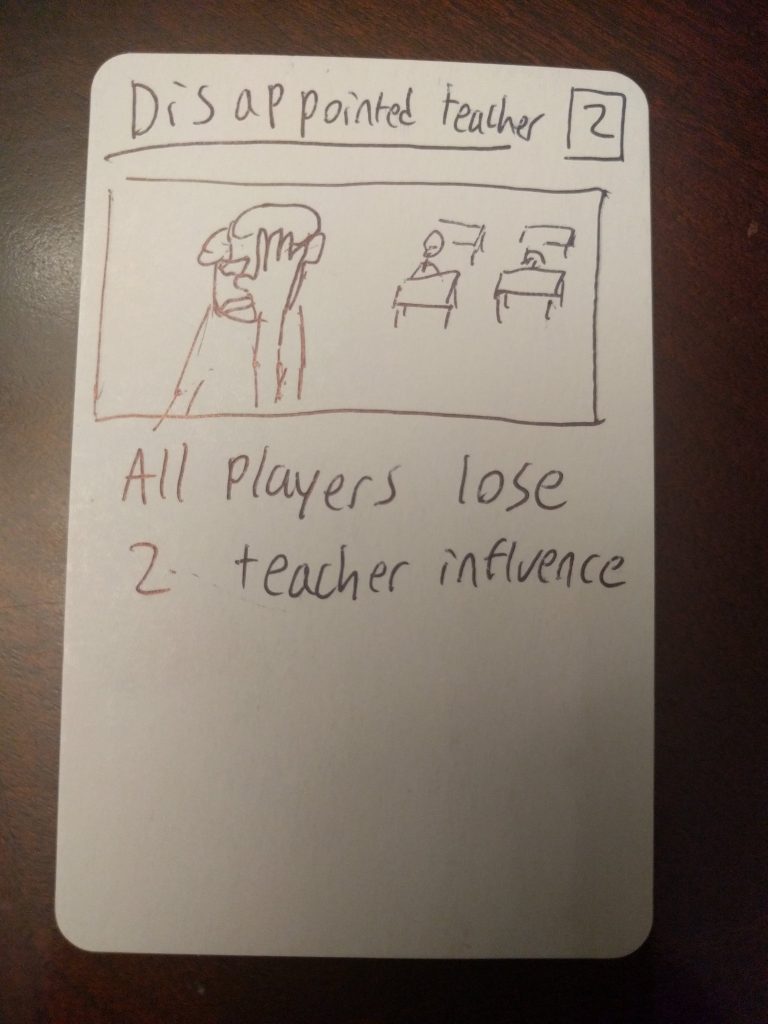 Disappointed teacher 2
All players lose
2 teacher influence